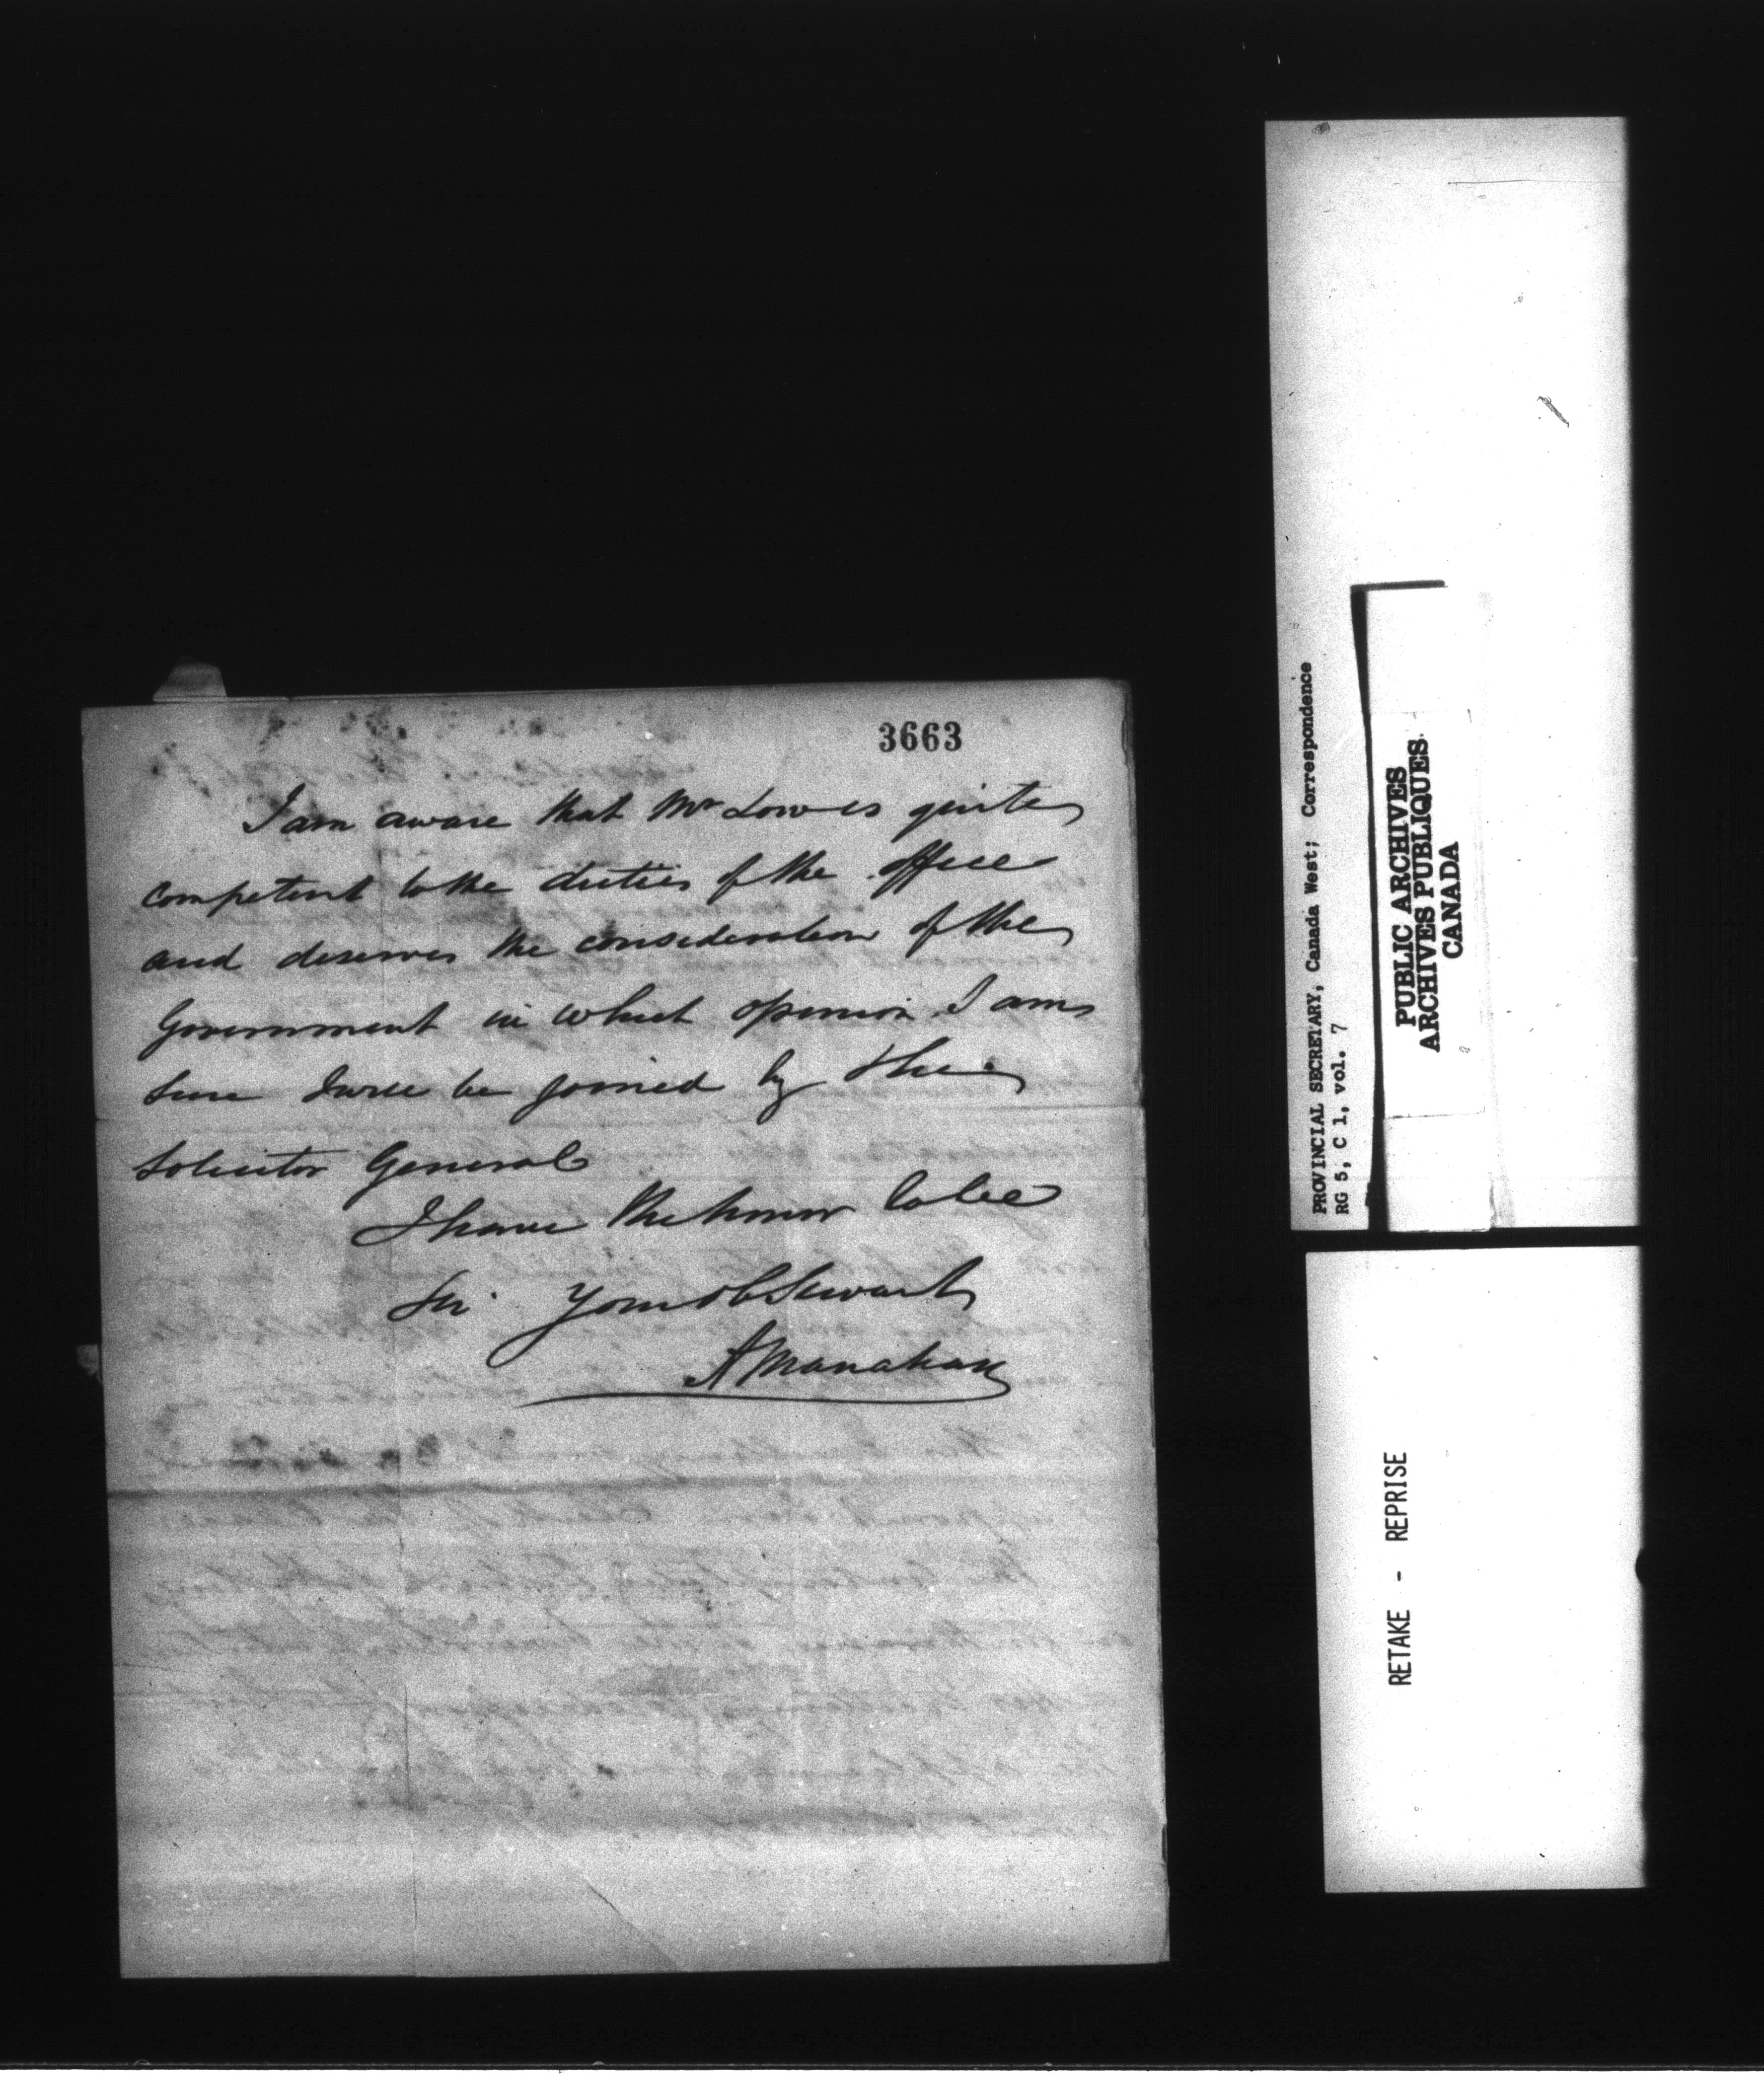 3663
I am aware that Mr Low is quite
competent to the duties of the office
and deserves the consideration of the
Government in which opinion I am
sure I will be joined by the
Solicitor General
I have the honor to be
Sir Your ob Servant
A Manahan
PROVINCIAL SECRETARY, Canada West; Correspondence
RG 5, C 1, vol. 7
PUBLIC ARCHIVES
ARCHIVES PUBLIQUES
CANADA
RETAKE - REPRISE